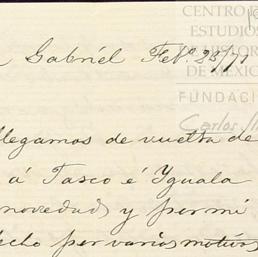 CENTRO
ESTUDIOS
DE HISTORIA
DE MÉXICO
FUNDACI
Carlos
Gabriél Feb.º 23/71
llegamos de vuelta de
á Tasco é Yguala
novedad y por mi
echo por varios motivos